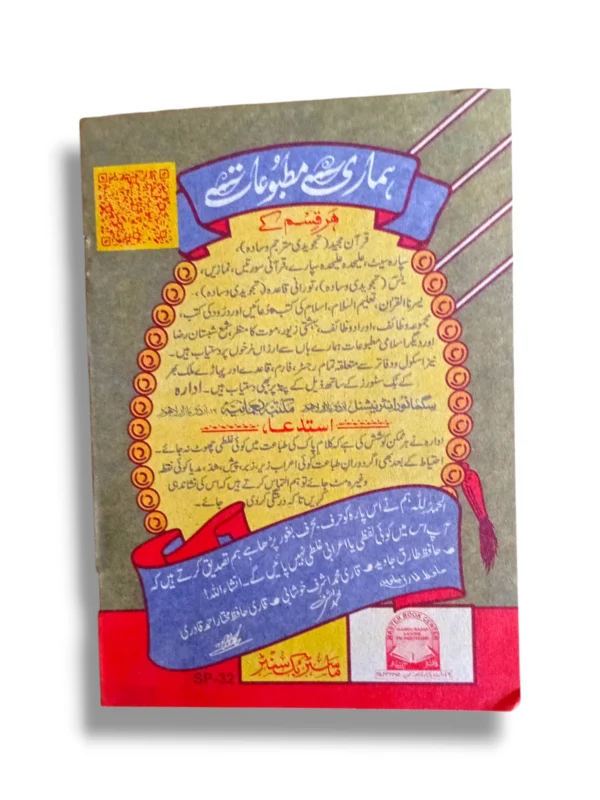 ہماری مطبوعات
ہر قسم کے
قرآن مجید (تجویدی مترجم وسادہ)،
سپارہ سیٹ، علیحدہ علیحدہ سپارے، قرآنی سورتیں، نمازیں،
یٰس (تجویدی وسادہ)، نورانی قاعدہ (تجویدی وسادہ)،
یسرنا القرآن، تعلیم السلام، اسلام کی کتب، دعائیں اور درود کی کتب،
مجموعہ وظائف، اوراد وظائف، بہشتی زیور، موت کا منظر، شمع شبستان رضا
اور دیگر اسلامی مطبوعات ہمارے ہاں سے ارزاں نرخوں پر دستیاب ہیں۔
نیز اسکول و دفاتر سے متعلقہ تمام رجسٹر، فارم، قاعدے اور پہاڑے ملک بھر
کے بک سٹورز کے ساتھ ذیل کے پتہ پر بھی دستیاب ہیں۔ ادارہ
انٹرنیشنل اردو بازار لاہور مکتبہ اردو بازار لاہور
استدعا
ادارہ نے ہر ممکن کوشش کی ہے کہ کلام پاک کی طباعت میں کوئی غلطی چھوٹ نہ جائے۔
احتیاط کے بعد بھی اگر دوران طباعت کوئی اعراب زیر، زبر، پیش، شد، مد یا کوئی نقطہ
وغیرہ مٹ جائے تو ہم التماس کرتے ہیں کہ اس کی نشاندہی
کریں تاکہ درستگی کر دی جائے۔
الحمدللہ ہم نے اس پارہ کو حرف بحرف بغور پڑھا ہے ہم تصدیق کرتے ہیں کہ
آپ اس میں کوئی لفظی یا اعرابی غلطی نہیں پائیں گے۔ انشاء اللہ!
حافظ طارق جاوید قاری محمد اشرف خوشابی قاری حافظ مختار احمد قادری
ماسٹر بک سنٹر
SP-32
MASTER BOOK CENTER